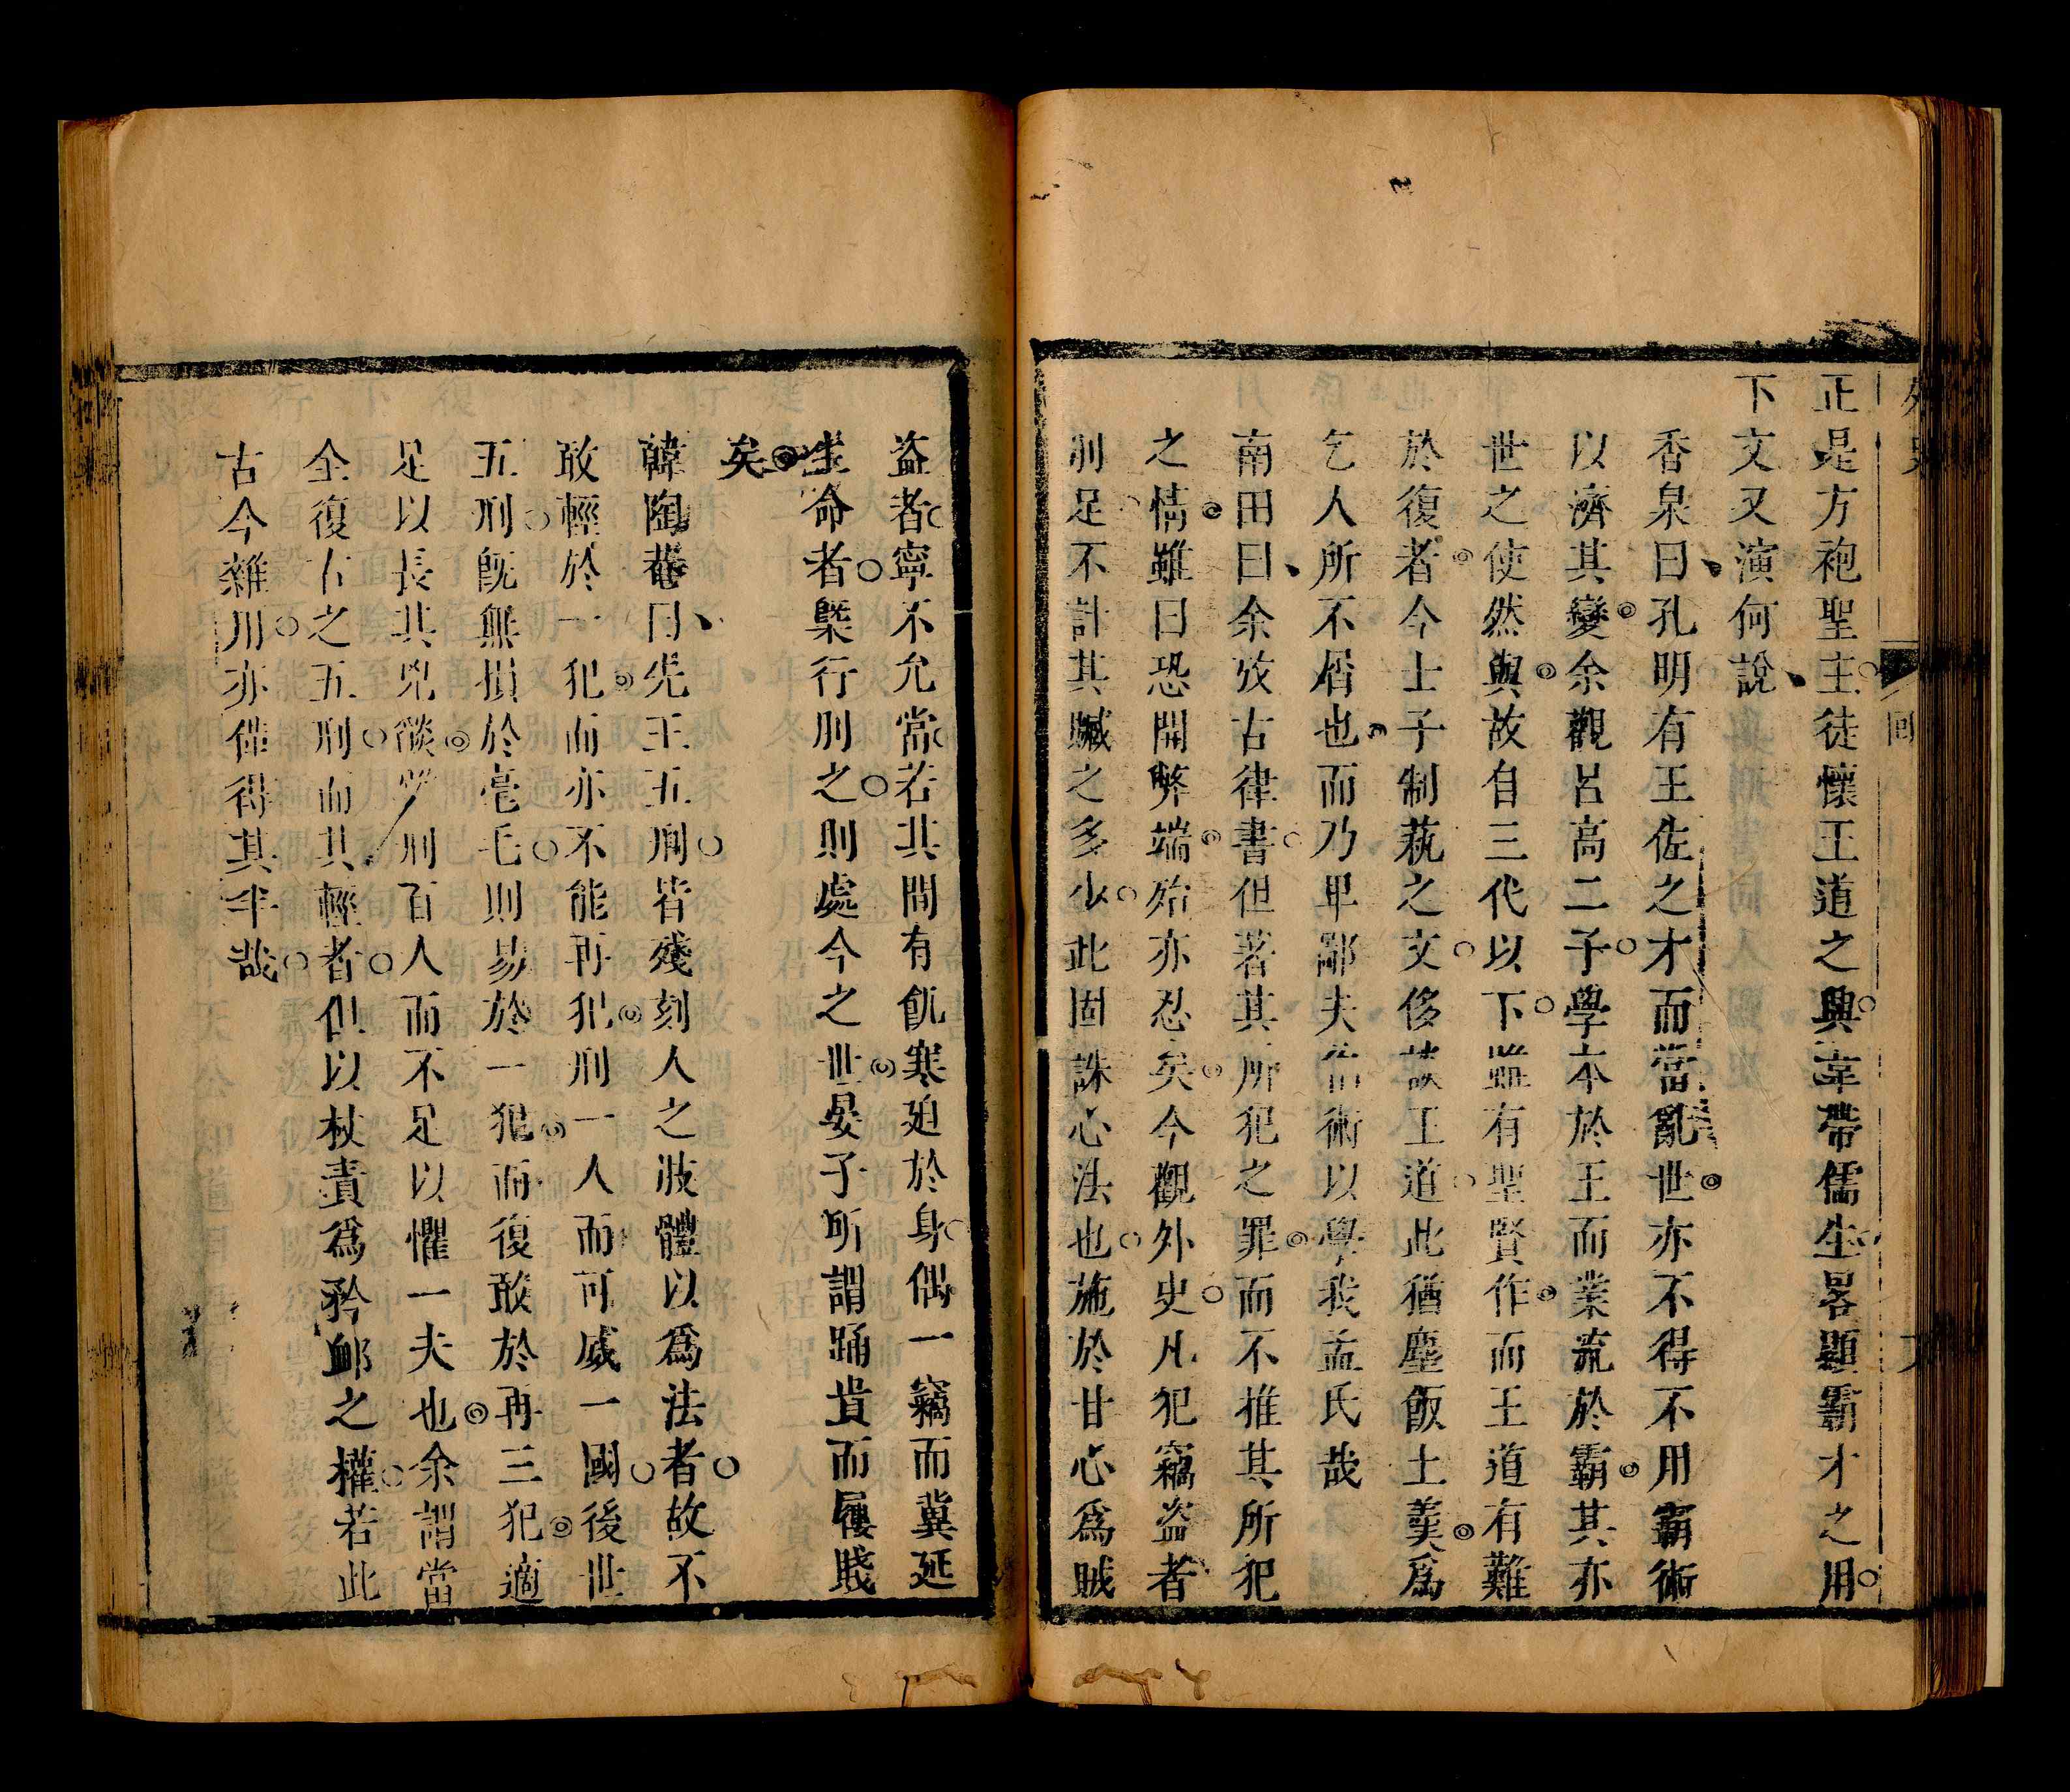 正是方袍聖主徒懷王道之興韋帶儒生畧顯霸才之用
下文又演何說
香泉曰孔明有王佐之才而當亂世亦不得不用霸術
以濟其變余觀呂高二子學本於王而業流於霸其亦
世之使然與故自三代以下雖有聖賢作而王道有難
於復者今士子制萟之文侈談王道此猶塵飯土羹爲
乞人所不屑也而乃卑鄙夫伯術以學我孟氏哉
南田曰余攷古律書但著其所犯之罪而不推其所犯
之情雖曰恐開弊端殆亦忍矣今觀外史凡犯竊盜者
刖足不計其贓之多少此固誅心法也施於甘心爲賊
盜者寧不允當若其間有飢寒廹於身偶一竊而冀延
生命者槩行刖之則處今之世晏子所謂踊貴而屨賤
矣
韓陶菴曰先王五刑皆殘刻人之肢體以爲法者故不
敢輕於一犯而亦不能再犯刑一人而可威一國後世
五刑旣無損於毫毛則易於一犯而復敢於再三犯適
足以長其兇燄刑百人而不足以懼一夫也余謂當
全復古之五刑而其輕者但以杖責爲矜卹之權若此
古今雜用亦僅得其半哉